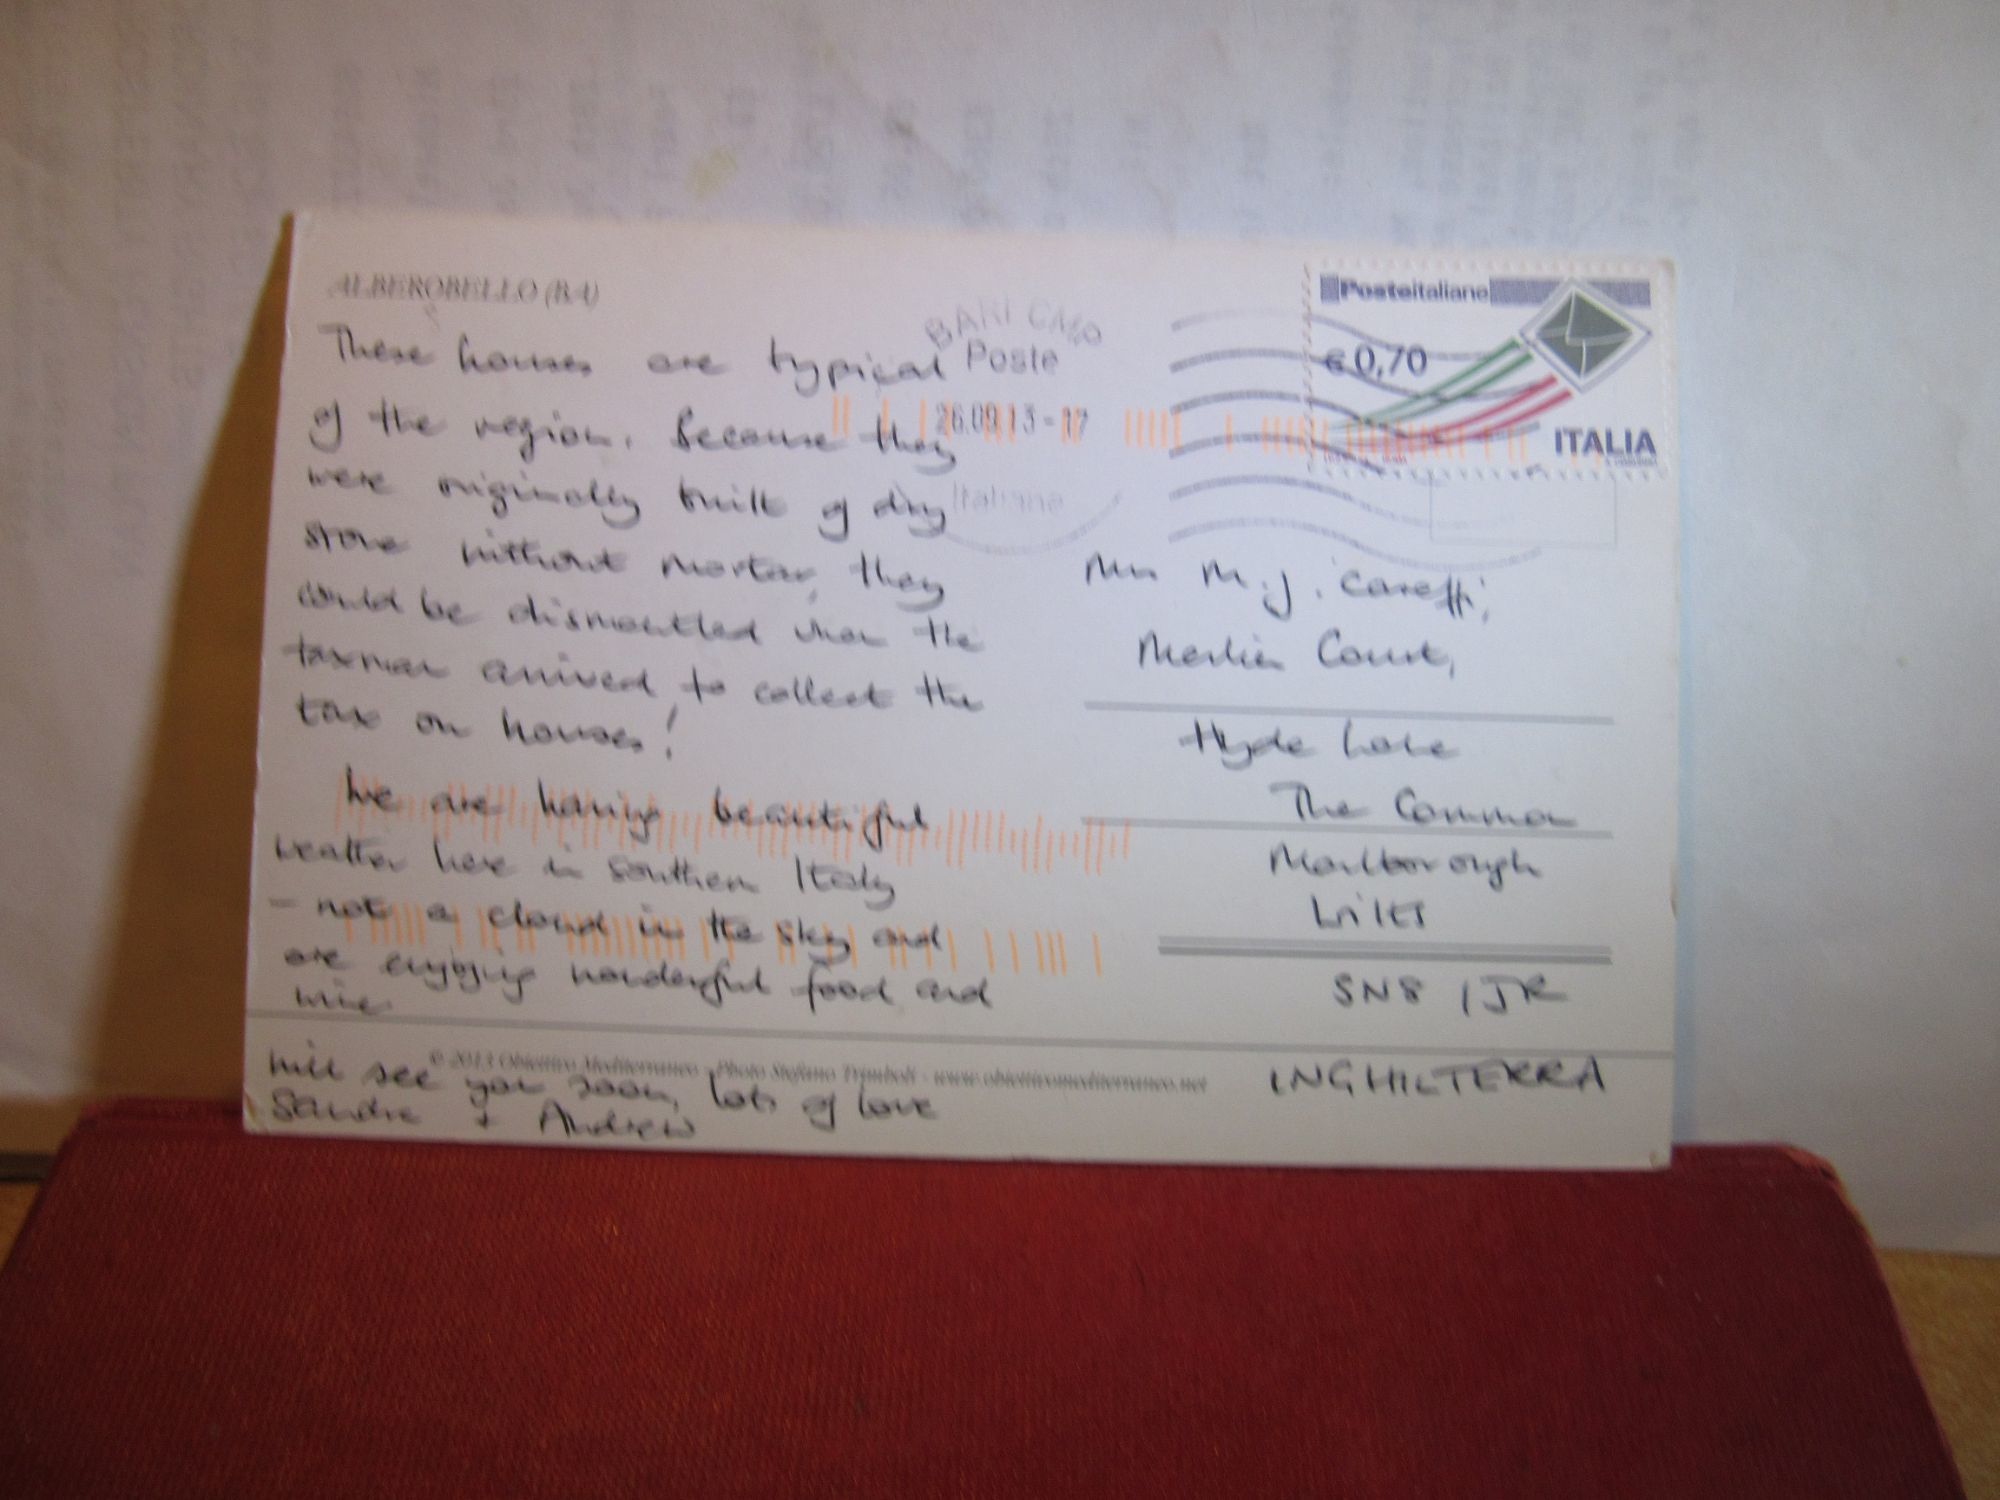 ALBEROBELLO (BA)
These houses are typical
of the region. Because they
were originally built of dry
stone without mortar, they
could be dismantled when the
taxman arrived to collect the
tax on houses!
We are having beautiful
weather here in southern Italy
- not a cloud in the sky and
are enjoying wonderful food and
wine.
Will see you soon, lots of love
Sandra + Andrew
© 2013 Obiettivo Mediterraneo - Photo Stefano Trimboli - www.obiettivomediterraneo.net
BARI CMP
Poste
26.09 13 - 17
Italiane
Posteitaliane
€0,70
ITALIA
M.J.
Merlin Court,
Hyde Lane
The Common
Marlborough
Wilts
SN8 1JR
INGHILTERRA